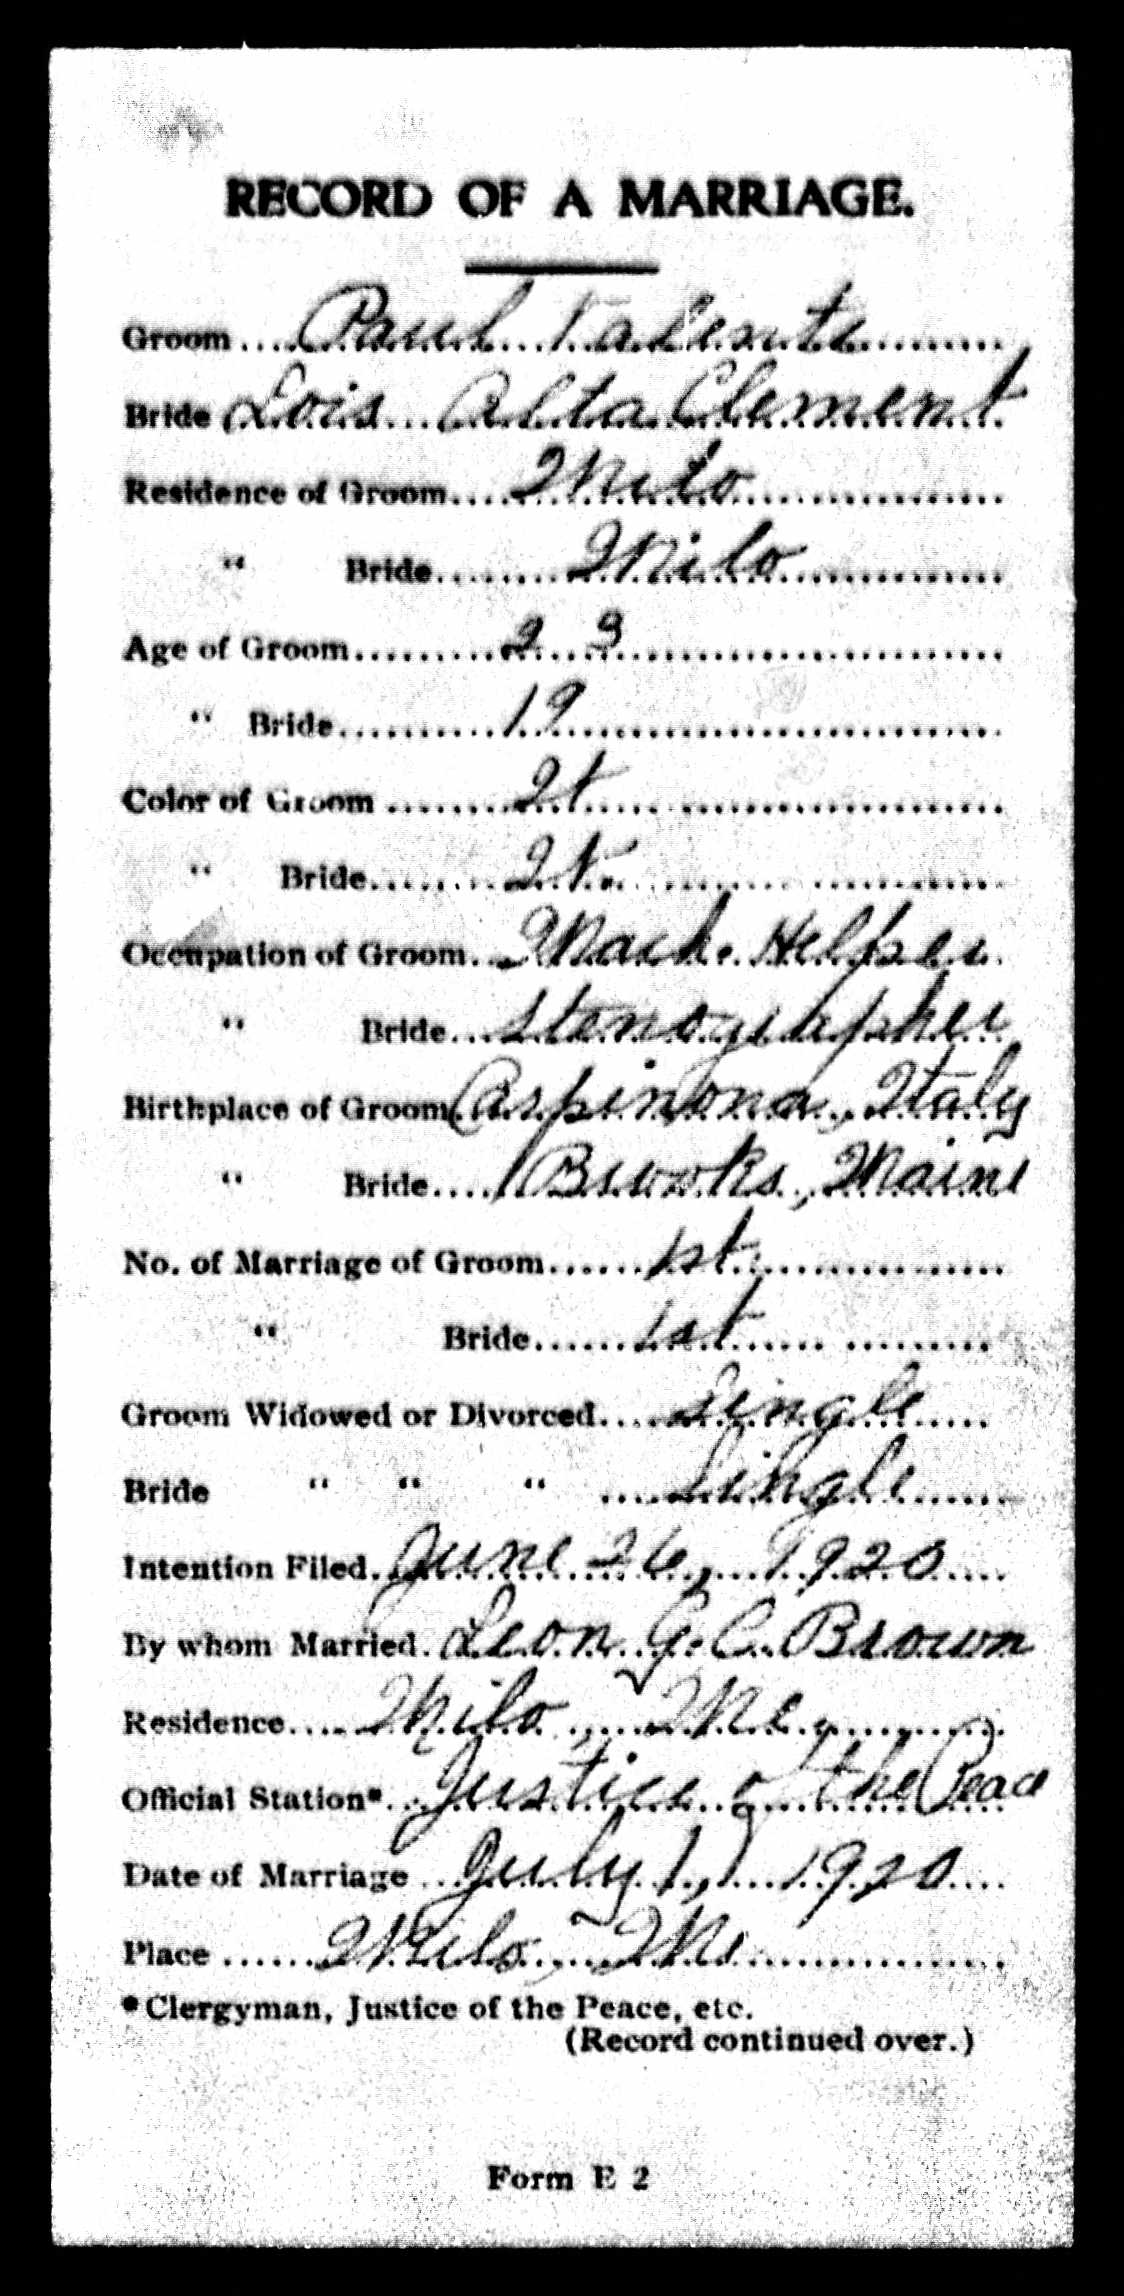 RECORD OF A MARRIAGE.
Groom.... Paul Valente
Bride Lois Alta Clement
Residence of Groom.... Milo
" Bride........ Milo
Age of Groom.........
" Bride.......... 19
Color of Groom ........
" Bride........
Occupation of Groom... Mach. Helper
" Bride... Stenographer
Birthplace of Groom, Italy
" Bride.... Brooks, Maine
No. of Marriage of Groom...... 1st
" Bride...... 1st
Groom Widowed or Divorced.... Single
Bride " " " .... Single
Intention Filed. June 26, 1920
By whom Married. Leon G. C. Brown
Residence.... Milo, Me,
Official Station*... Justice o the Peace
Date of Marriage ... July 1, 1920
Place ...... Milo, Me
*Clergyman, Justice of the Peace, etc.
(Record continued over.)
Form E 2